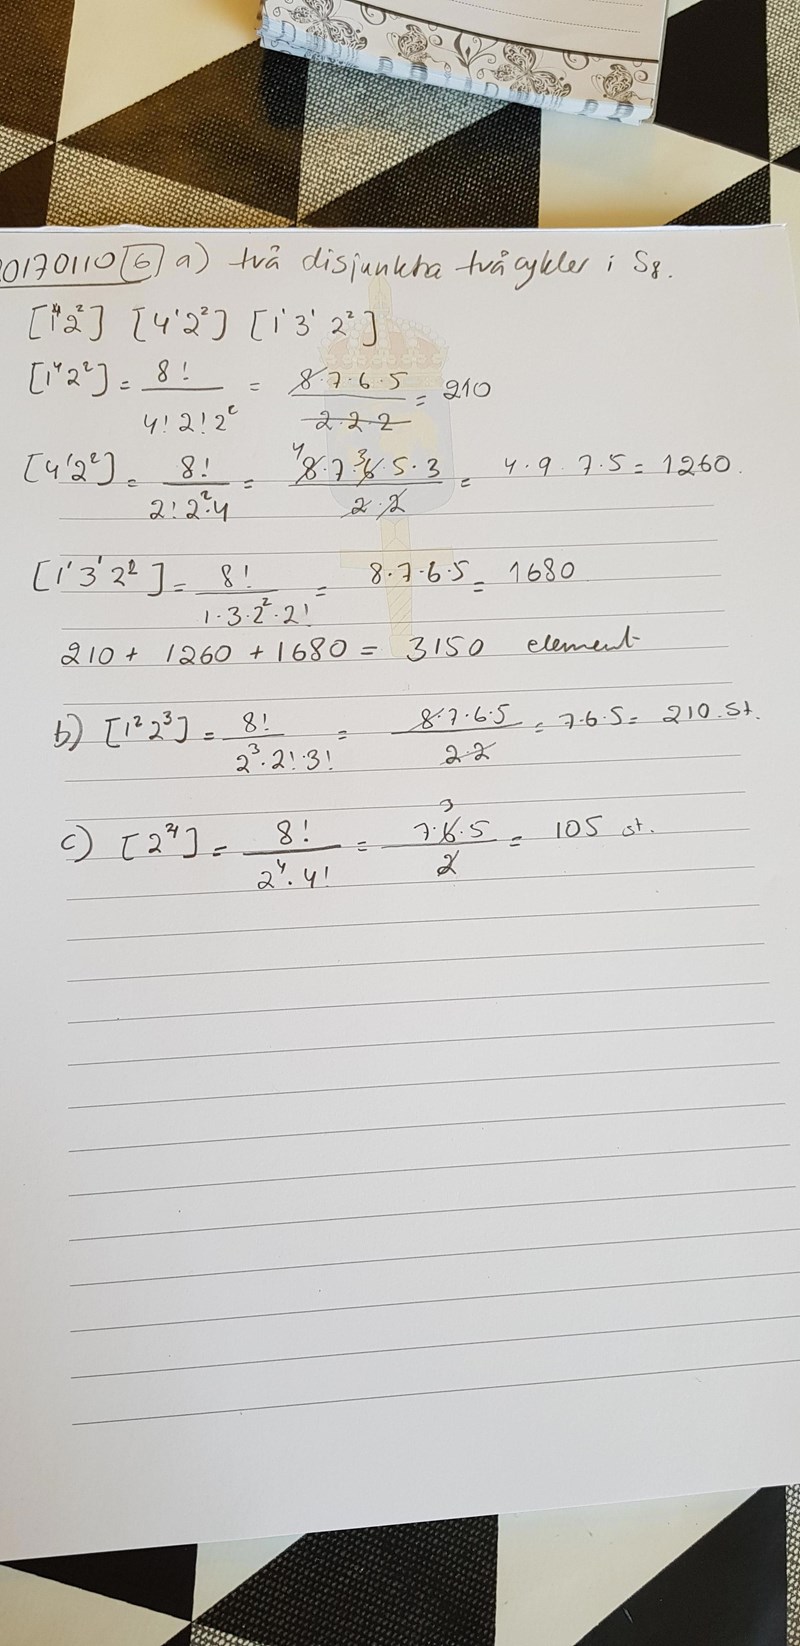 20170110 6 a) två disjunkta tvåcykler i S₈.
[1⁴2²] [4¹2²] [1¹3¹2²]
[1⁴2²] = 8! / 4!2!2² = 8·7·6·5 / 2·2·2 = 210
[4¹2²] = 8! / 2!2²·4 = 4 8·7·3 6·5·3 / 2·2 = 4·9·7·5 = 1260.
[1¹3¹2²] = 8! / 1·3·2²·2! = 8·7·6·5 = 1680
210 + 1260 + 1680 = 3150 element
b) [1²2³] = 8! / 2³·2!·3! = 8·7·6·5 / 2·2 = 7·6·5 = 210 st.
c) [2⁴] = 8! / 2⁴·4! = 7·3 6·5 / 2 = 105 st.